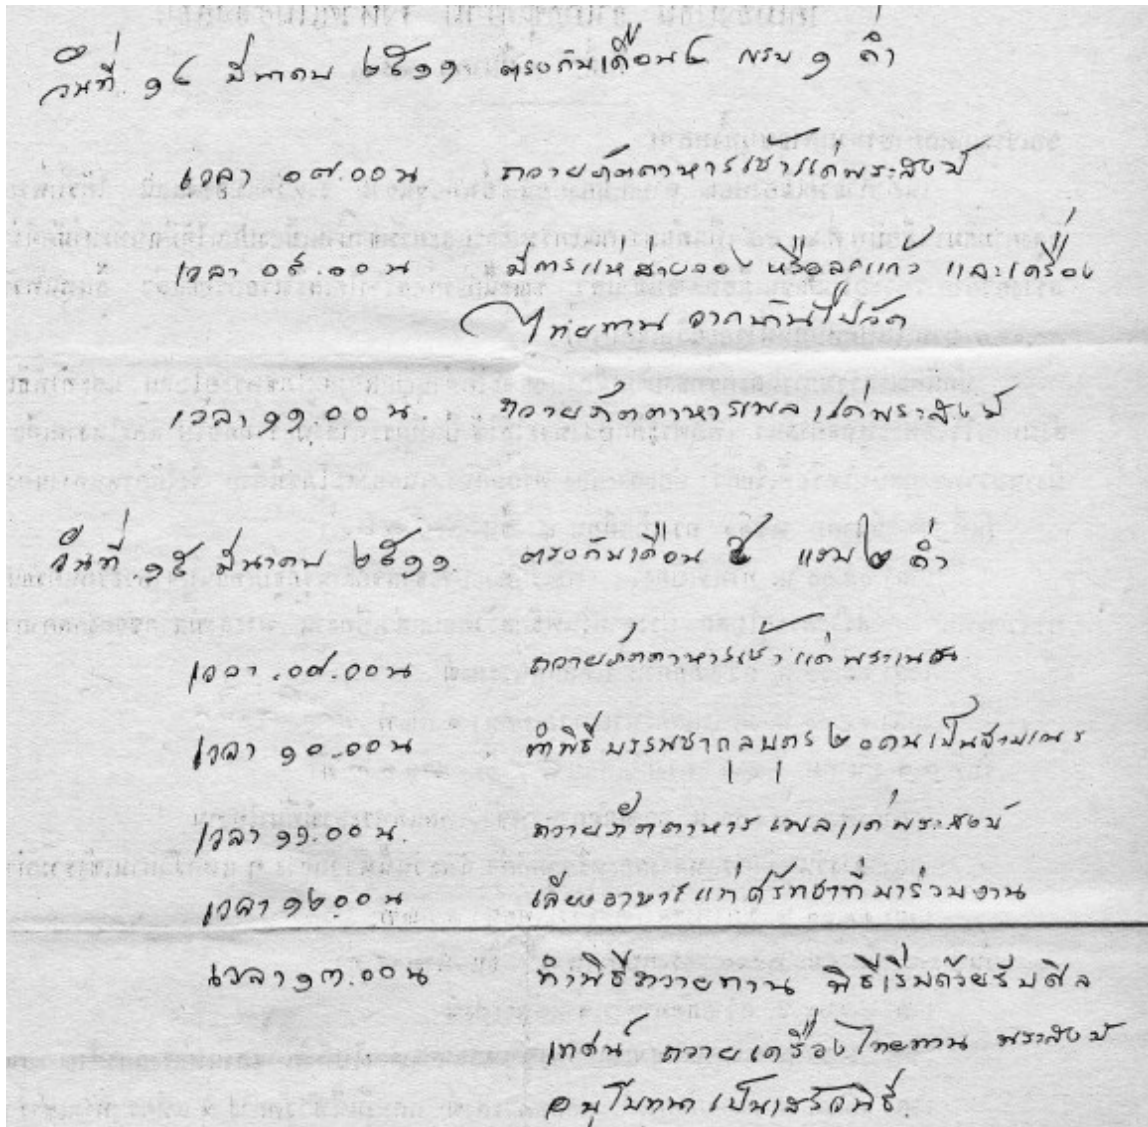 วันที่ ๑๔ มีนาคม ๒๕๑๑ ตรงกับเดือน ๔ แรม ๑ ค่ำ
เวลา ๐๗.๐๐ น ถวายภัตตาหารเช้าแด่พระสงฆ์
เวลา ๐๙.๐๐ น มีการแห่ส่างลอง หรือลูกแก้ว และเครื่อง
ไทยทาน จากบ้านไปวัด
เวลา ๑๑.๐๐ น. ถวายภัตตาหารเพล แด่พระสงฆ์
วันที่ ๑๕ มีนาคม ๒๕๑๑. ตรงกับเดือน ๔ แรม ๒ ค่ำ
เวลา .๐๗.๐๐ น ถวายภัตตาหารเช้า แด่พระเณร
เวลา ๑๐.๐๐ น ทำพิธี บรรพชากุลบุตร ๒๐ คน เป็นสามเณร
เวลา ๑๑.๐๐ น. ถวายภัตตาหาร เพล แด่พระสงฆ์
เวลา ๑๒.๐๐ น เลี้ยงอาหารแก่ศรัทธาที่มาร่วมงาน
เวลา ๑๓.๐๐ น ทำพิธีถวายทาน พิธีเริ่มด้วยรับศีล
เทศน์ ถวายเครื่องไทยทาน พระสงฆ์
อนุโมทนา เป็นเสร็จพิธี.